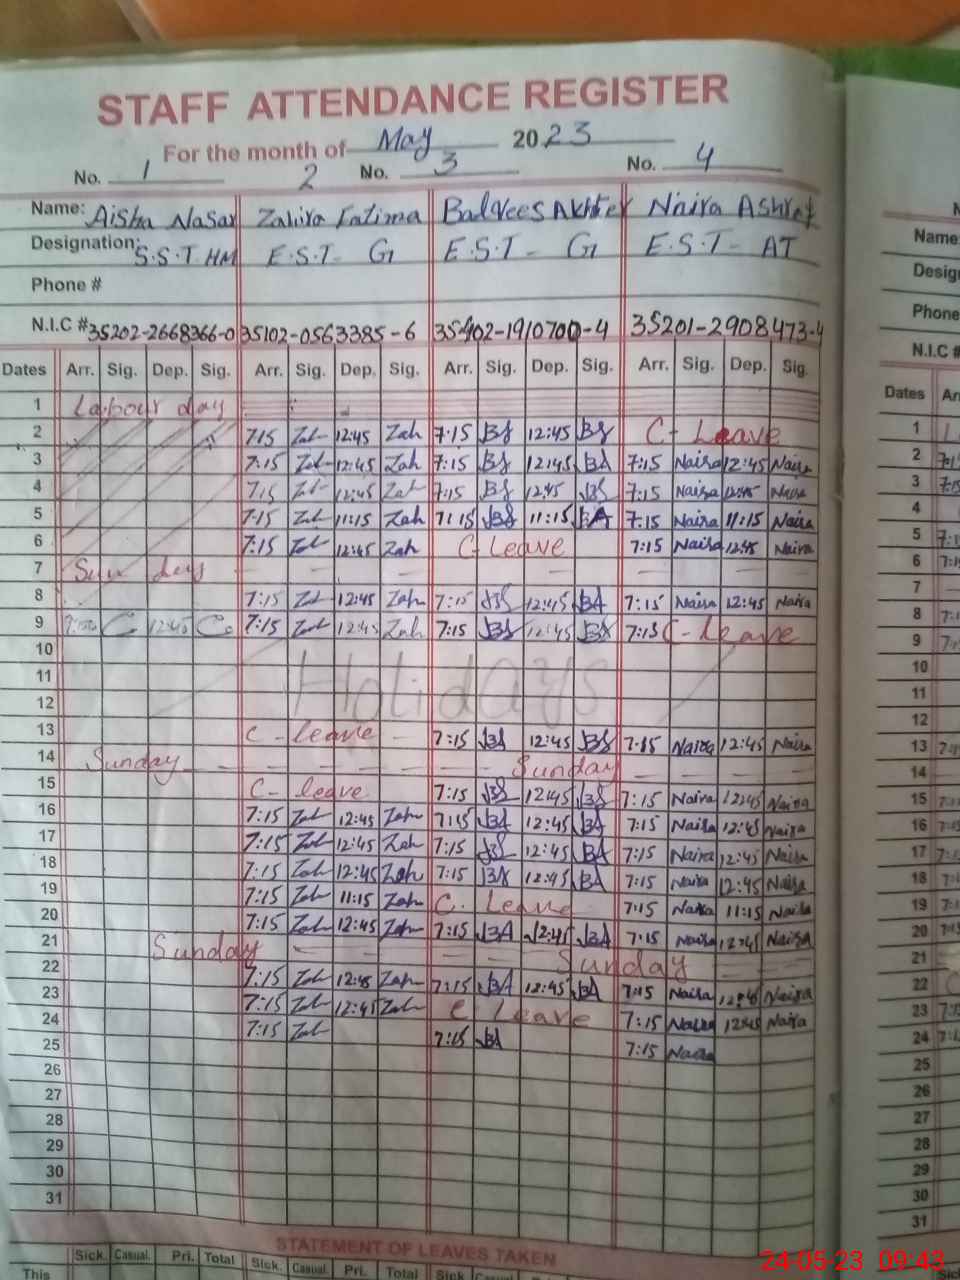 STAFF ATTENDANCE REGISTER
For the month of May 2023
No. 1 2 No. 3 No. 4
Name: Aisha Nasar Zahira Fatima Balqees Akhter Naira Ashraf
Designation: S.S.T HM E.S.T- G E.S.T- G E.S.T- AT
Phone #
N.I.C # 35202-2668366-0 35102-0563385-6 35402-1910700-4 35201-2908473-4
Dates Arr. Sig. Dep. Sig. Arr. Sig. Dep. Sig. Arr. Sig. Dep. Sig. Arr. Sig. Dep. Sig.
1 Labour day
2 7:15 Zah 12:45 Zah 7:15 BS 12:45 BS C- Leave
3 7:15 Zah 12:45 Zah 7:15 BS 12:45 BA 7:15 Naira 12:45 Naira
4 7:15 Zah 12:45 Zah 7:15 BS 12:45 BS 7:15 Naira 12:45 Naira
5 7:15 Zah 11:15 Zah 7:15 BS 11:15 BA 7:15 Naira 11:15 Naira
6 7:15 Zah 12:45 Zah C- Leave 7:15 Naira 12:45 Naira
7 Sun day
8 7:15 Zah 12:45 Zah 7:15 BS 12:45 BA 7:15 Naira 12:45 Naira
9 12:45 7:15 Zah 12:45 Zah 7:15 BS 12:45 BS 7:15 C- Leave
10
11 Holidays
12
13 C- leave 7:15 BA 12:45 BS 7:15 Naira 12:45 Naira
14 Sunday Sunday
15 C- leave 7:15 BS 12:45 BS 7:15 Naira 12:45 Naira
16 7:15 Zah 12:45 Zah 7:15 BA 12:45 BA 7:15 Naira 12:45 Naira
17 7:15 Zah 12:45 Zah 7:15 BS 12:45 BA 7:15 Naira 12:45 Naira
18 7:15 Zah 12:45 Zah 7:15 BA 12:45 BA 7:15 Naira 12:45 Naira
19 7:15 Zah 11:15 Zah C. Leave 7:15 Naira 11:15 Naira
20 7:15 Zah 12:45 Zah 7:15 BA 12:45 BA 7:15 Naira 12:45 Naira
21 Sunday Sunday
22 7:15 Zah 12:45 Zah 7:15 BA 12:45 BA 7:15 Naira 12:45 Naira
23 7:15 Zah 12:45 Zah C- Leave 7:15 Naira 12:45 Naira
24 7:15 Zah 7:15 BA 7:15 Naira
25
26
27
28
29
30
31
STATEMENT OF LEAVES TAKEN
Sick. Casual. Pri. Total Sick. Casual. Pri. Total Sick Casual.
This
Name:
Phone
N.I.C #
Dates
1
2
3
4
5
6
7
8
9
10
11
12
13
14
15
16
17
18
19
20
21
22
23
24
25
26
27
28
29
30
31
24-05-23 09:43